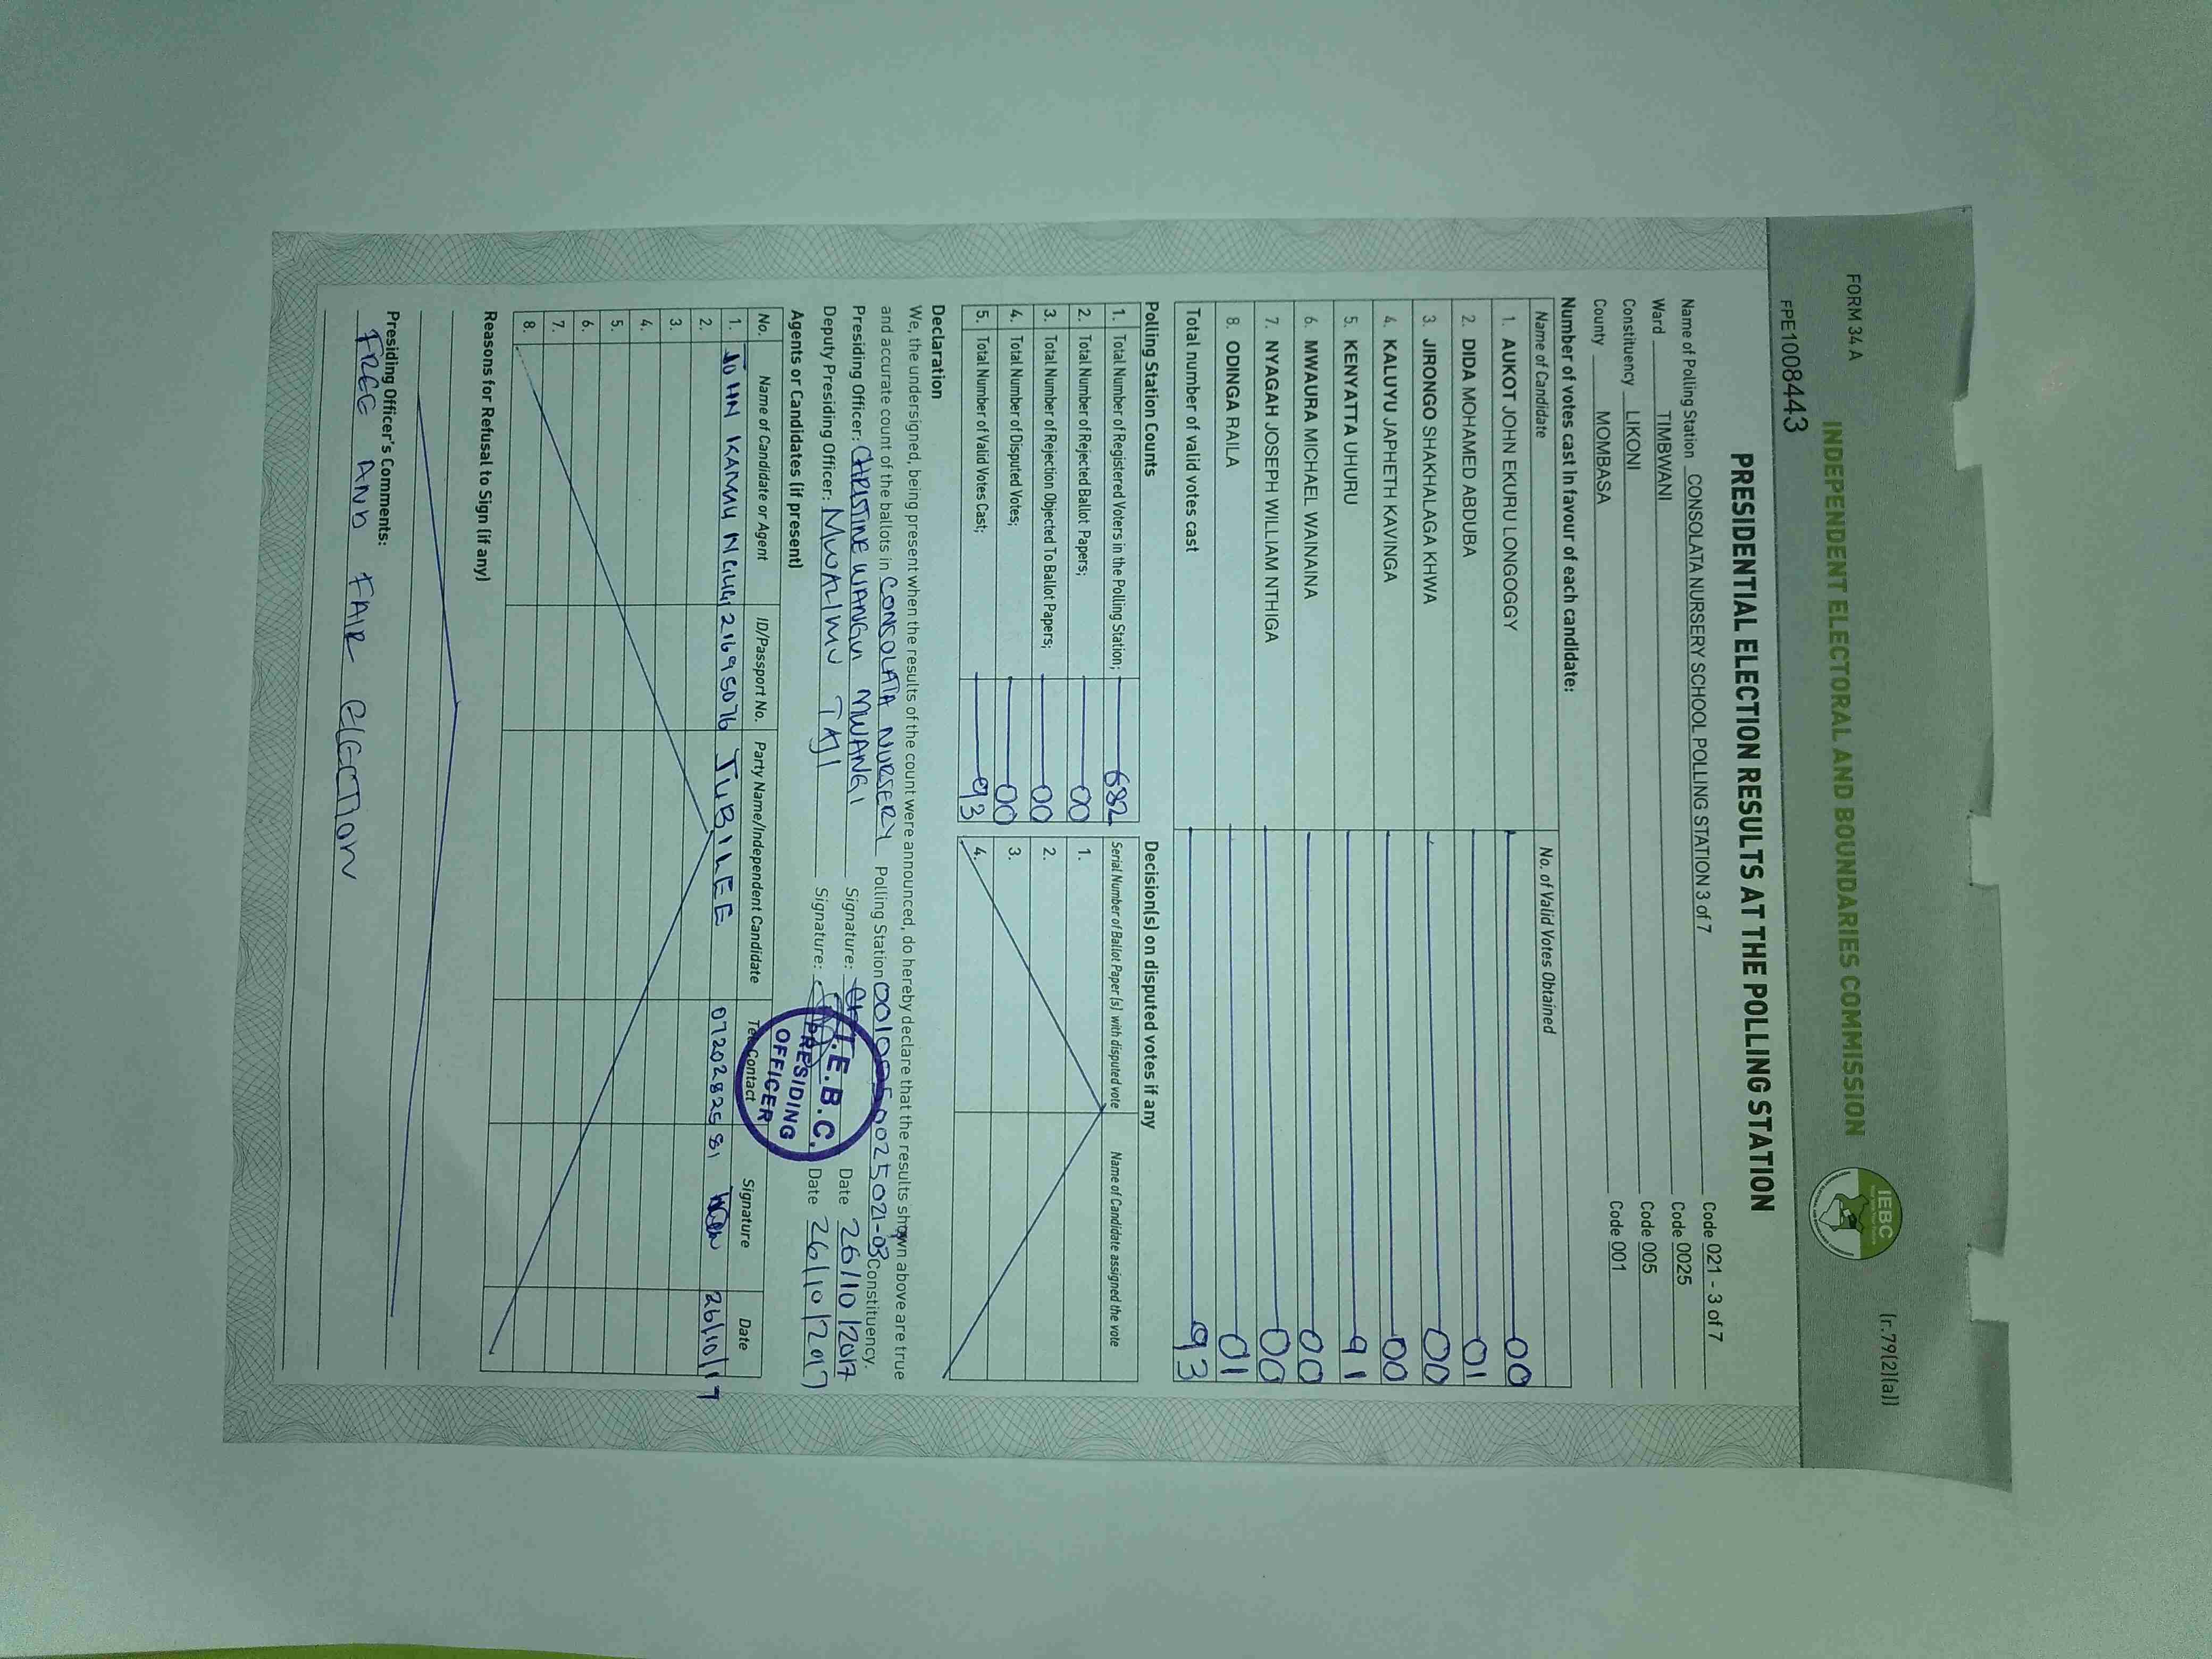 FORM 34 A
(r.79(2)(a))
INDEPENDENT ELECTORAL AND BOUNDARIES COMMISSION
IEBC
FPE1008443
PRESIDENTIAL ELECTION RESULTS AT THE POLLING STATION
Name of Polling Station CONSOLATA NURSERY SCHOOL POLLING STATION 3 of 7 Code 021 - 3 of 7
Ward TIMBWANI Code 0025
Constituency LIKONI Code 005
County MOMBASA Code 001
Number of votes cast in favour of each candidate:
Name of Candidate No. of Valid Votes Obtained
1. AUKOT JOHN EKURU LONGOGGY 00
2. DIDA MOHAMED ABDUBA 01
3. JIRONGO SHAKHALAGA KHWA 00
4. KALUYU JAPHETH KAVINGA 00
5. KENYATTA UHURU 91
6. MWAURA MICHAEL WAINAINA 00
7. NYAGAH JOSEPH WILLIAM NTHIGA 00
8. ODINGA RAILA 01
Total number of valid votes cast 93
Polling Station Counts
1. Total Number of Registered Voters in the Polling Station; 682
2. Total Number of Rejected Ballot Papers; 00
3. Total Number of Rejection Objected To Ballot Papers; 00
4. Total Number of Disputed Votes; 00
5. Total Number of Valid Votes Cast; 93
Decision(s) on disputed votes if any
Serial Number of Ballot Paper (s) with disputed vote Name of Candidate assigned the vote
1.
2.
3.
4.
Declaration
We, the undersigned, being present when the results of the count were announced, do hereby declare that the results shown above are true
and accurate count of the ballots in CONSOLATA NURSERY Polling Station 0010050025021-03 Constituency.
Presiding Officer: CHRISTINE WIANGUI MWANGI Signature: Date 26/10/2017
Deputy Presiding Officer: MWALIMU TAJI Signature: Date 26/10/2017
I.E.B.C.
PRESIDING
OFFICER
Agents or Candidates (if present)
No. Name of Candidate or Agent ID/Passport No. Party Name/Independent Candidate Tel. Contact Signature Date
1. JOHN KAMAU NGUGI 21695076 JUBILEE 0720282581 26/10/17
2.
3.
4.
5.
6.
7.
8.
Reasons for Refusal to Sign (if any)
Presiding Officer's Comments:
FREE AND FAIR ELECTION